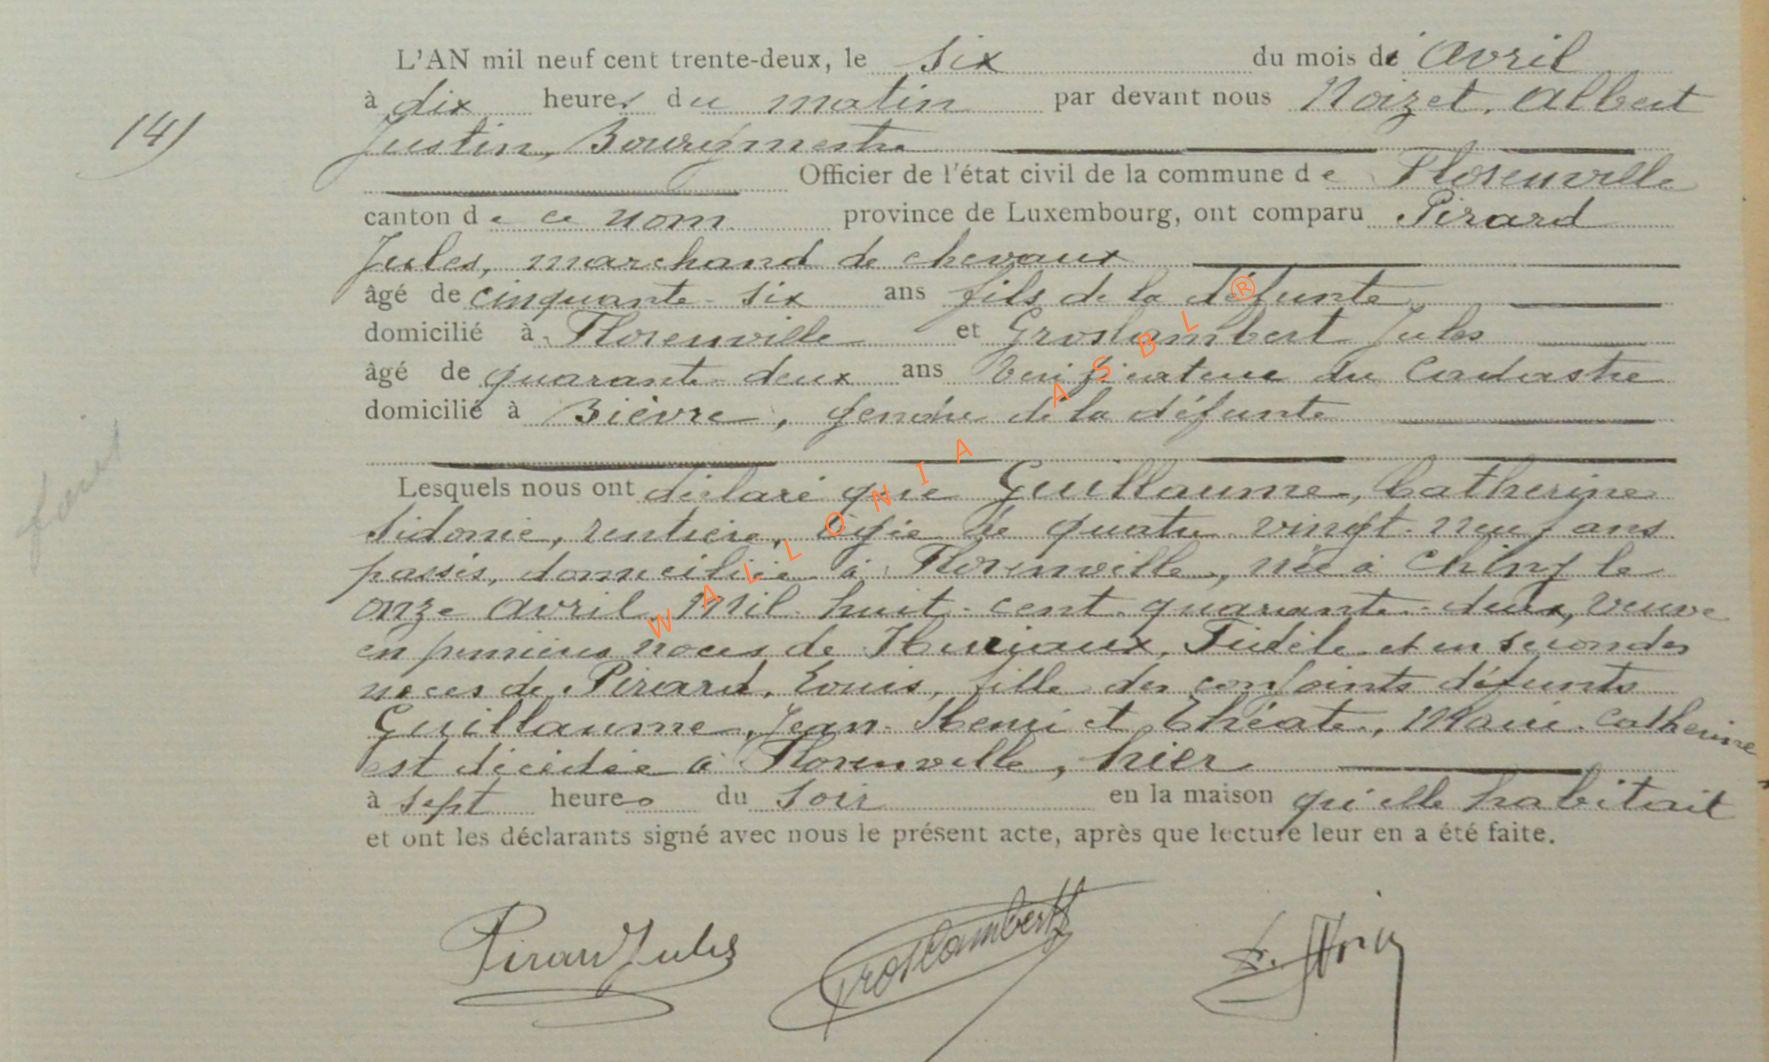 L'AN mil neuf cent trente-deux, le six du mois de Avril
14)
à dix heures du matin par devant nous Noizet, Albert
Justin, Bourgmestre
Officier de l'état civil de la commune de Florenville
canton de ce nom province de Luxembourg, ont comparu Pirard
Jules, marchand de chevaux
âgé de cinquante-six ans fils de la défunte,
domicilié à Florenville et Groslambert Jules
âgé de quarante-deux ans Vérificateur du Cadastre
domicilié à Bièvre, gendre de la défunte
Lesquels nous ont déclaré que Guillaume, Catherine
Sidonie, rentière, âgée de quatre-vingt-neuf ans
passés, domiciliée à Florenville, née à Chiny le
onze avril mil huit-cent-quarante-deux, veuve
en premières noces de Fidèle et en secondes
noces de Pirard, Louis, fille des conjoints défunts
Guillaume, Jean-Henri et Théate, Marie-Catherine
est décédée à Florenville, hier
à sept heures du soir en la maison qu'elle habitait
et ont les déclarants signé avec nous le présent acte, après que lecture leur en a été faite.
WALLONIA ASBL ®
Pirard Jules
Groslambert